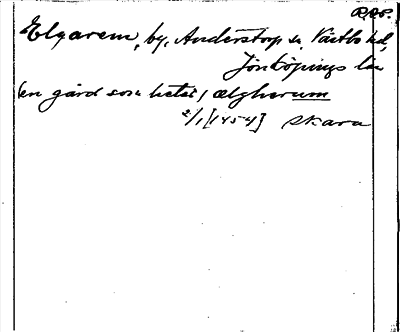 P.ap.
Elgarem, by, Anderstorp sn Västbo hd,
Jönköpings län
(en gård som heter) ælgherum
2/1 [1454] Skara